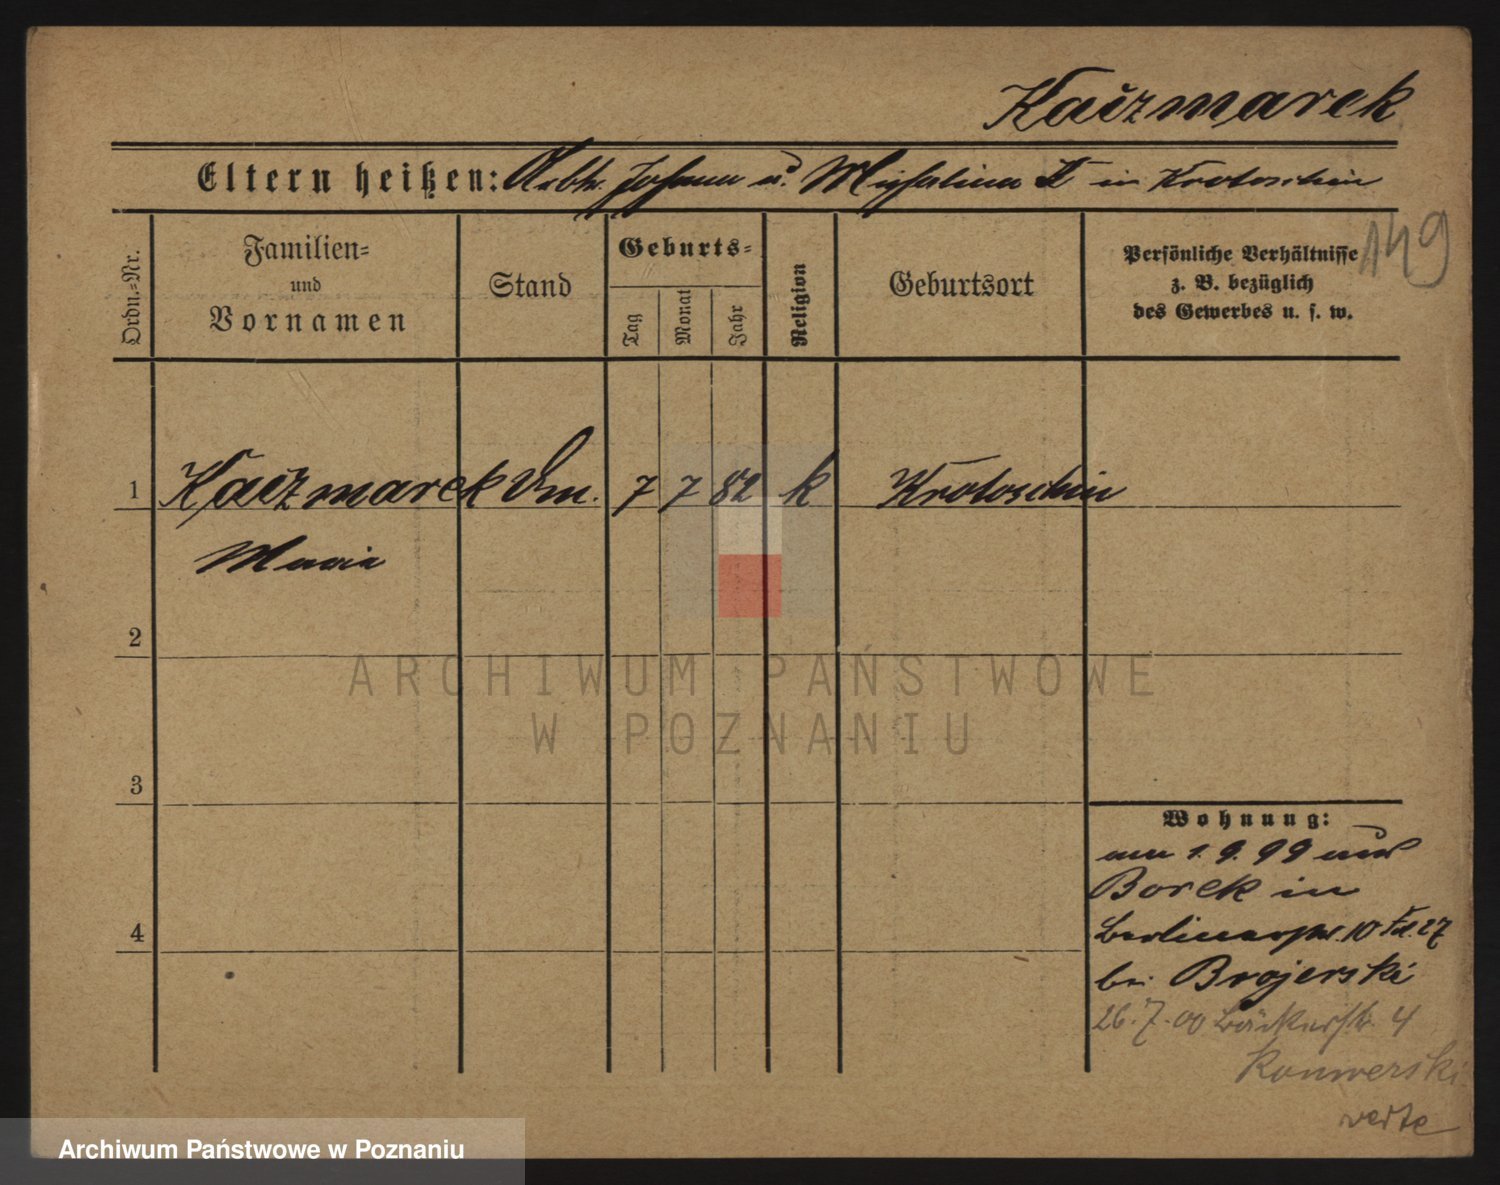 Kaczmarek
Eltern heißen: Arbtr. Johann u. Michalina K in Krotoschin
149
Ordn.=Nr.
Familien=
und
Vornamen
Stand
Geburts=
Tag
Monat
Jahr
Religion
Geburtsort
Persönliche Verhältnisse
z. B. bezüglich
des Gewerbes u. s. w.
1 Kaczmarek 7 7 82 k Krotoschin
Maria
2
3
4
Wohnung:
am 1. 9. 99 aus
Borek in
Berlinerstr. 10 27
bei Brojerski
26. 7. 00 Bäckerstr. 4
Konwerski
verte
ARCHIWUM PAŃSTWOWE
W POZNANIU
Archiwum Państwowe w Poznaniu